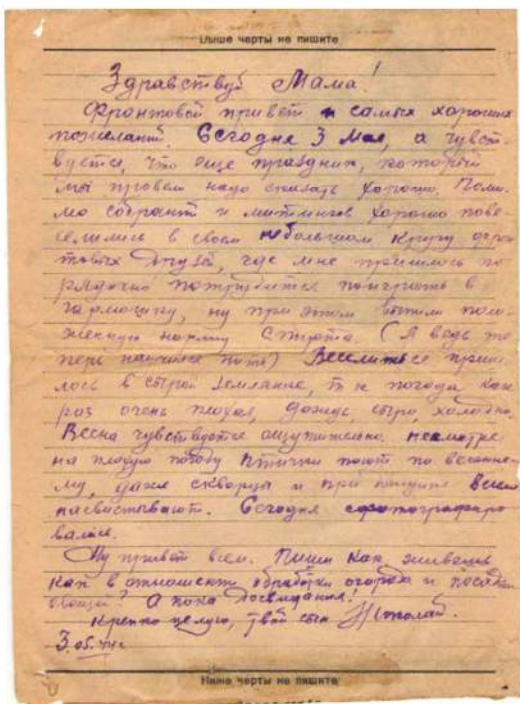 Выше черты не пишите
Здравствуй Мама!
Фронтовой привет и самых хороших
пожеланий. Сегодня 3 Мая, а чувст-
вуется, что еще праздник, который
мы провели надо сказать хорошо. Поми-
мо собраний и митингов хорошо пове-
селились в своем небольшом кругу фрон-
товых друзей, где мне пришлось по
рядочно потрудится поиграть в
гармошку, ну при этом выпили поло-
женную норму спирта. (А ведь те
перь научился пить) Веселиться приш-
лось в сырой землянке, т к погода как
раз очень плохая, дождь, сыро, холодно.
Весна чувствуется ощутительно несмотря
на плохую погоду птички поют по весенне-
му, даже скворцы и при
насвистывают. Сегодня сфотографиро
вались.
Ну привет всем. Пиши как живешь
как в отношении обработки огорода и посадки
овощей? А пока досвидания!
Крепко целую, твой сын Николай.
3.05.44г.
Ниже черты не пишите